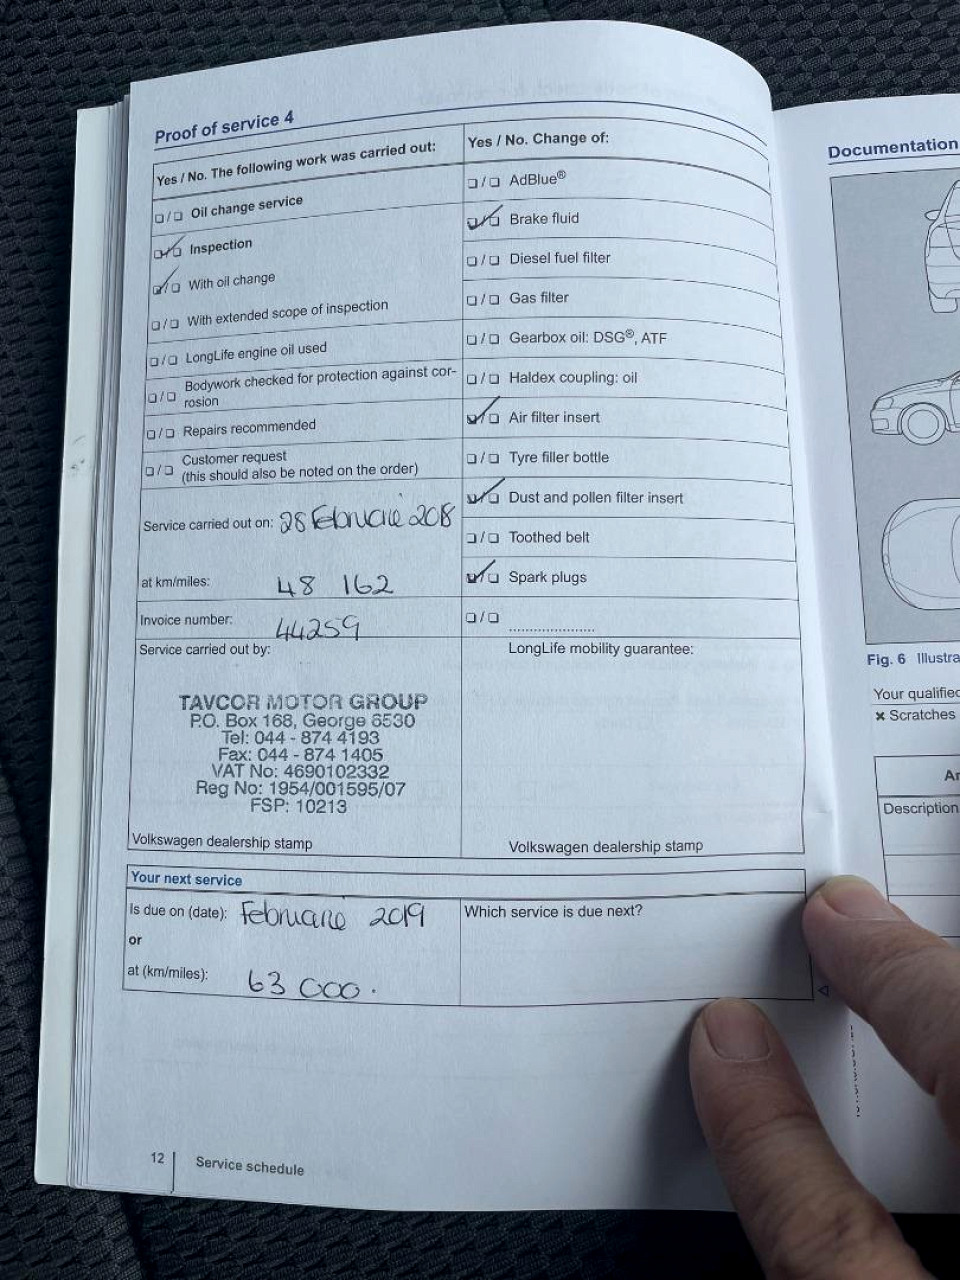 Proof of service 4
Yes / No. The following work was carried out:
❑/❑ Oil change service
❑/❑ Inspection
❑/❑ With oil change
❑/❑ With extended scope of inspection
❑/❑ LongLife engine oil used
❑/❑ Bodywork checked for protection against cor-
rosion
❑/❑ Repairs recommended
❑/❑ Customer request
(this should also be noted on the order)
Service carried out on: 28 Februarie 2018
at km/miles: 48 162
Invoice number: 44259
Service carried out by:
TAVCOR MOTOR GROUP
P.O. Box 168, George 6530
Tel: 044 - 874 4193
Fax: 044 - 874 1405
VAT No: 4690102332
Reg No: 1954/001595/07
FSP: 10213
Volkswagen dealership stamp
Yes / No. Change of:
❑/❑ AdBlue®
❑/❑ Brake fluid
❑/❑ Diesel fuel filter
❑/❑ Gas filter
❑/❑ Gearbox oil: DSG®, ATF
❑/❑ Haldex coupling: oil
❑/❑ Air filter insert
❑/❑ Tyre filler bottle
❑/❑ Dust and pollen filter insert
❑/❑ Toothed belt
❑/❑ Spark plugs
❑/❑ .....................
LongLife mobility guarantee:
Volkswagen dealership stamp
Your next service
Is due on (date): Februarie 2019
or
at (km/miles): 63 000.
Which service is due next?
12 Service schedule
Documentation
Fig. 6 Illustra
Your qualified
× Scratches
Ar
Description